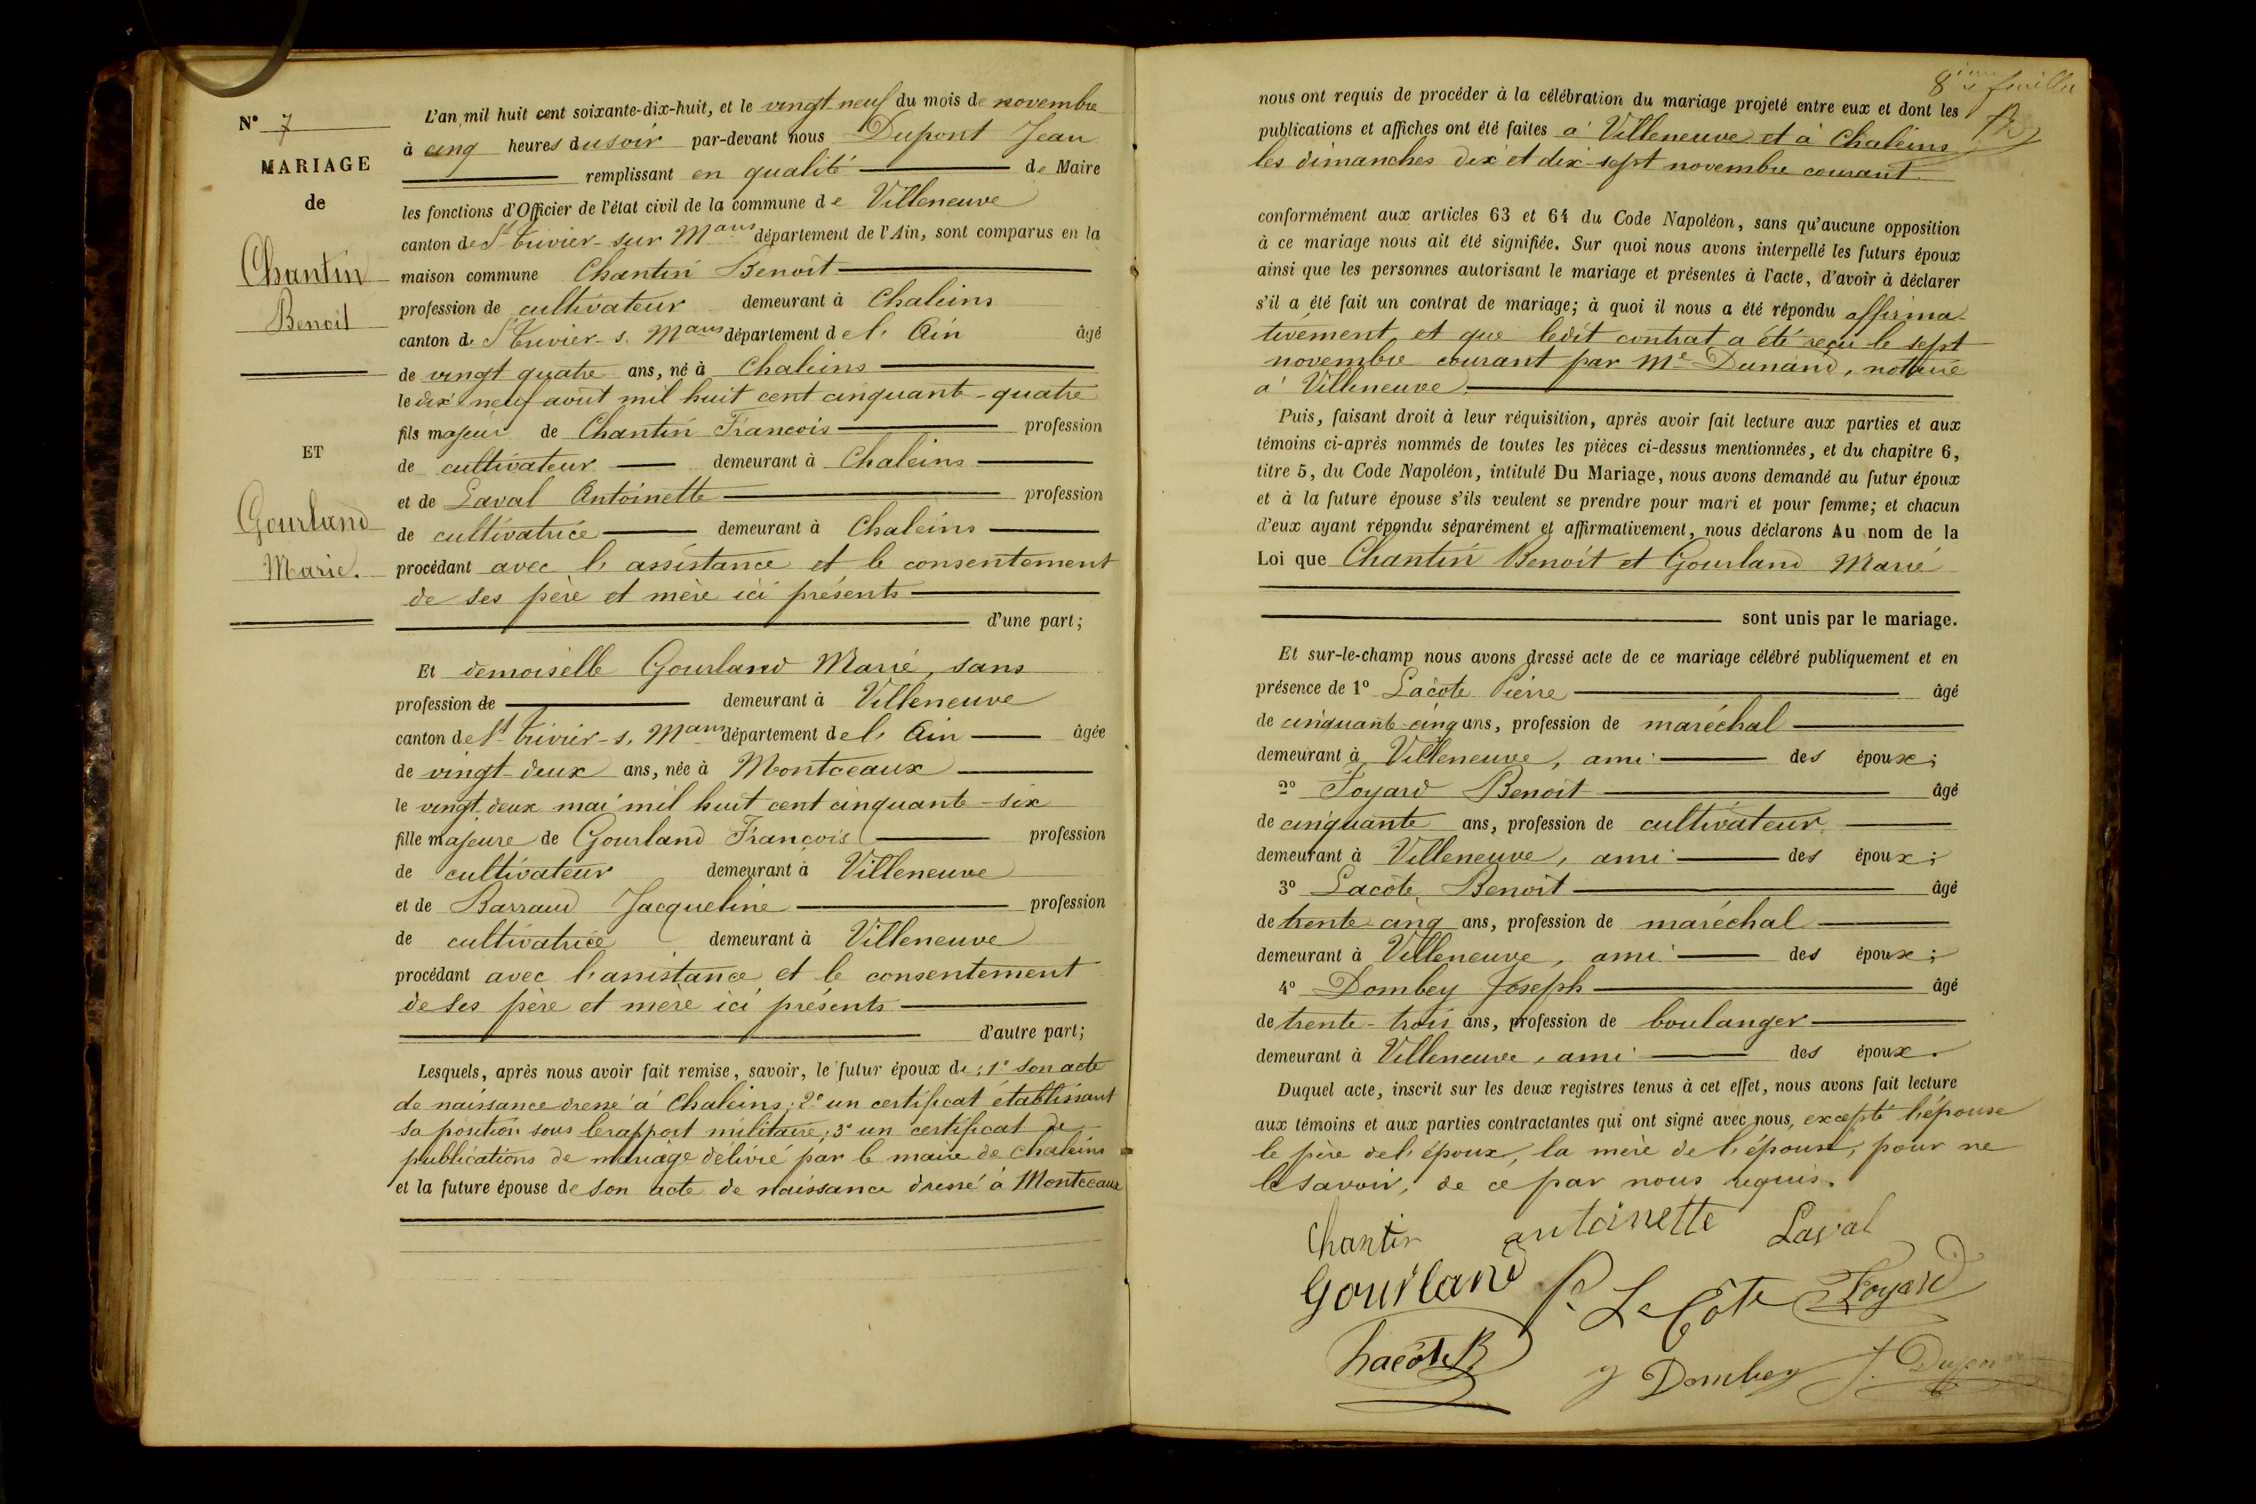 N° 7
MARIAGE
de
Chantin
Benoit
ET
Gourland
Marie.
L'an mil huit cent soixante-dix-huit, et le vingt neuf du mois de novembre
à cinq heures du soir par-devant nous Dupont Jean
remplissant en qualité de Maire
les fonctions d'Officier de l'état civil de la commune de Villeneuve
canton de St Trivier-sur Mans département de l'Ain, sont comparus en la
maison commune Chantin Benoit
profession de cultivateur demeurant à Chaleins
canton de St Trivier-s. Mans département de l'Ain âgé
de vingt quatre ans, né à Chaleins
le dix neuf août mil huit cent cinquante-quatre
fils majeur de Chantin François profession
de cultivateur demeurant à Chaleins
et de Laval Antoinette profession
de cultivatrice demeurant à Chaleins
procédant avec l'assistance et le consentement
de ses père et mère ici présents
d'une part;
Et demoiselle Gourland Marie, sans
profession de demeurant à Villeneuve
canton de St Trivier-s. Mans département de l'Ain âgée
de vingt-deux ans, née à Montceaux
le vingt deux mai mil huit cent cinquante-six
fille majeure de Gourland François profession
de cultivateur demeurant à Villeneuve
et de Barraud Jacqueline profession
de cultivatrice demeurant à Villeneuve
procédant avec l'assistance et le consentement
de ses père et mère ici présents
d'autre part;
Lesquels, après nous avoir fait remise, savoir, le futur époux de: 1° son acte
de naissance dressé à Chaleins; 2° un certificat établissant
sa position sous le rapport militaire; 3° un certificat de
publications de mariage délivré par le maire de Chaleins
et la future épouse de son acte de naissance dressé à Montceaux
8ième feuillet
nous ont requis de procéder à la célébration du mariage projeté entre eux et dont les
publications et affiches ont été faites à Villeneuve et à Chaleins
les dimanches dix et dix-sept novembre courant
conformément aux articles 63 et 64 du Code Napoléon, sans qu'aucune opposition
à ce mariage nous ait été signifiée. Sur quoi nous avons interpellé les futurs époux
ainsi que les personnes autorisant le mariage et présentes à l'acte, d'avoir à déclarer
s'il a été fait un contrat de mariage; à quoi il nous a été répondu affirma-
tivement et que ledit contrat a été reçu le sept
novembre courant par Me Dunand, notaire
à Villeneuve
Puis, faisant droit à leur réquisition, après avoir fait lecture aux parties et aux
témoins ci-après nommés de toutes les pièces ci-dessus mentionnées, et du chapitre 6,
titre 5, du Code Napoléon, intitulé Du Mariage, nous avons demandé au futur époux
et à la future épouse s'ils veulent se prendre pour mari et pour femme; et chacun
d'eux ayant répondu séparément et affirmativement, nous déclarons Au nom de la
Loi que Chantin Benoit et Gourland Marie
sont unis par le mariage.
Et sur-le-champ nous avons dressé acte de ce mariage célébré publiquement et en
présence de 1° Lacôte Pierre âgé
de cinquante-cinq ans, profession de maréchal
demeurant à Villeneuve, ami des époux;
2° Foyard Benoit âgé
de cinquante ans, profession de cultivateur
demeurant à Villeneuve, ami des époux;
3° Lacôte Benoit âgé
de trente-cinq ans, profession de maréchal
demeurant à Villeneuve, ami des époux;
4° Dombey Joseph âgé
de trente-trois ans, profession de boulanger
demeurant à Villeneuve, ami des époux.
Duquel acte, inscrit sur les deux registres tenus à cet effet, nous avons fait lecture
aux témoins et aux parties contractantes qui ont signé avec nous, excepté l'épouse
le père de l'époux, la mère de l'épouse, pour ne
le savoir, de ce par nous requis.
Chantin antoinette Laval
Gourland P. LaCôte Foyard
Lacôte B
J Dombey J. Dupont